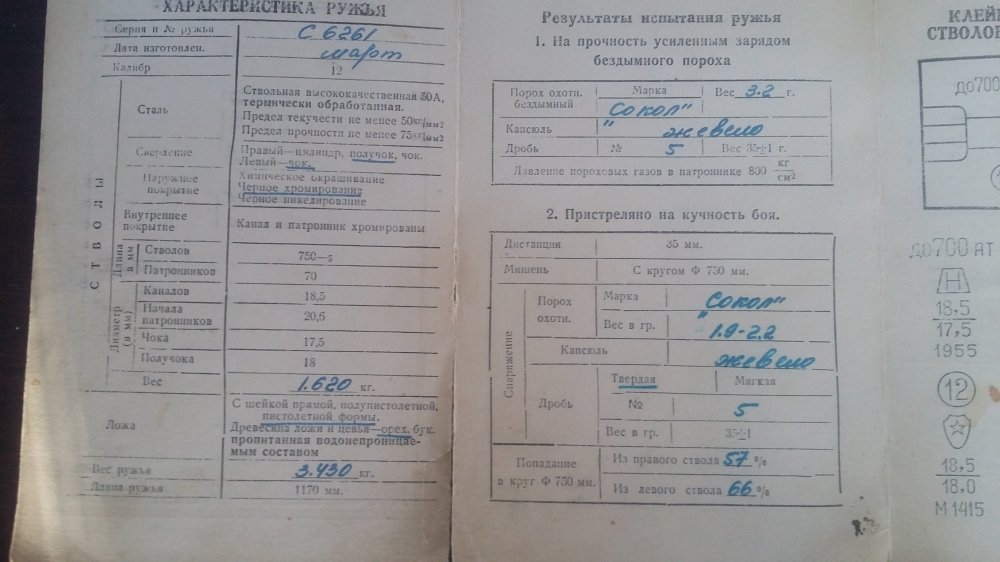 ХАРАКТЕРИСТИКА РУЖЬЯ
Серия и № ружья С 6261
Дата изготовлен. март
Калибр 12
СТВОЛЫ
Сталь
Ствольная высококачественная 50А,
термически обработанная.
Предел текучести не менее 50кг/мм2
Предел прочности не менее 75кг/мм2
Сверление
Правый—цилиндр, получок, чок.
Левый—чок.
Наружное
покрытие
Химическое окрашивание
Черное хромирование
Черное никелирование
Внутреннее
покрытие
Канал и патронник хромированы
Длина
в мм
Стволов 750—5
Патронников 70
Диаметр
(в мм)
Каналов 18,5
Начала
патронников 20,6
Чока 17,5
Получока 18
Вес 1.620 кг.
Ложа
С шейкой прямой, полупистолетной,
пистолетной формы.
Древесина ложи и цевья—орех, бук.
пропитанная водонепроницае-
мым составом
Вес ружья 3.430 кг.
Длина ружья 1170 мм.
Результаты испытания ружья
1. На прочность усиленным зарядом
бездымного пороха
Порох охотн.
бездымный
Марка Вес 3.2 г.
"Сокол"
Капсюль жевело
Дробь № 5 Вес 35±1 г.
Давление пороховых газов в патроннике 800 кг
см2
2. Пристреляно на кучность боя.
Дистанция 35 мм.
Мишень С кругом Ф 750 мм.
Снаряжение
Порох
охотн.
Марка "Сокол"
Вес в гр. 1.9-2.2
Капсюль жевело
Дробь
Твердая Мягкая
№ 5
Вес в гр. 35±1
Попадание
в круг Ф 750 мм.
Из правого ствола 57 %
Из левого ствола 66 %
КЛЕЙ
СТВОЛО
до700
до700 ат
Н
18,5
17,5
1955
12
18,5
18,0
М1415